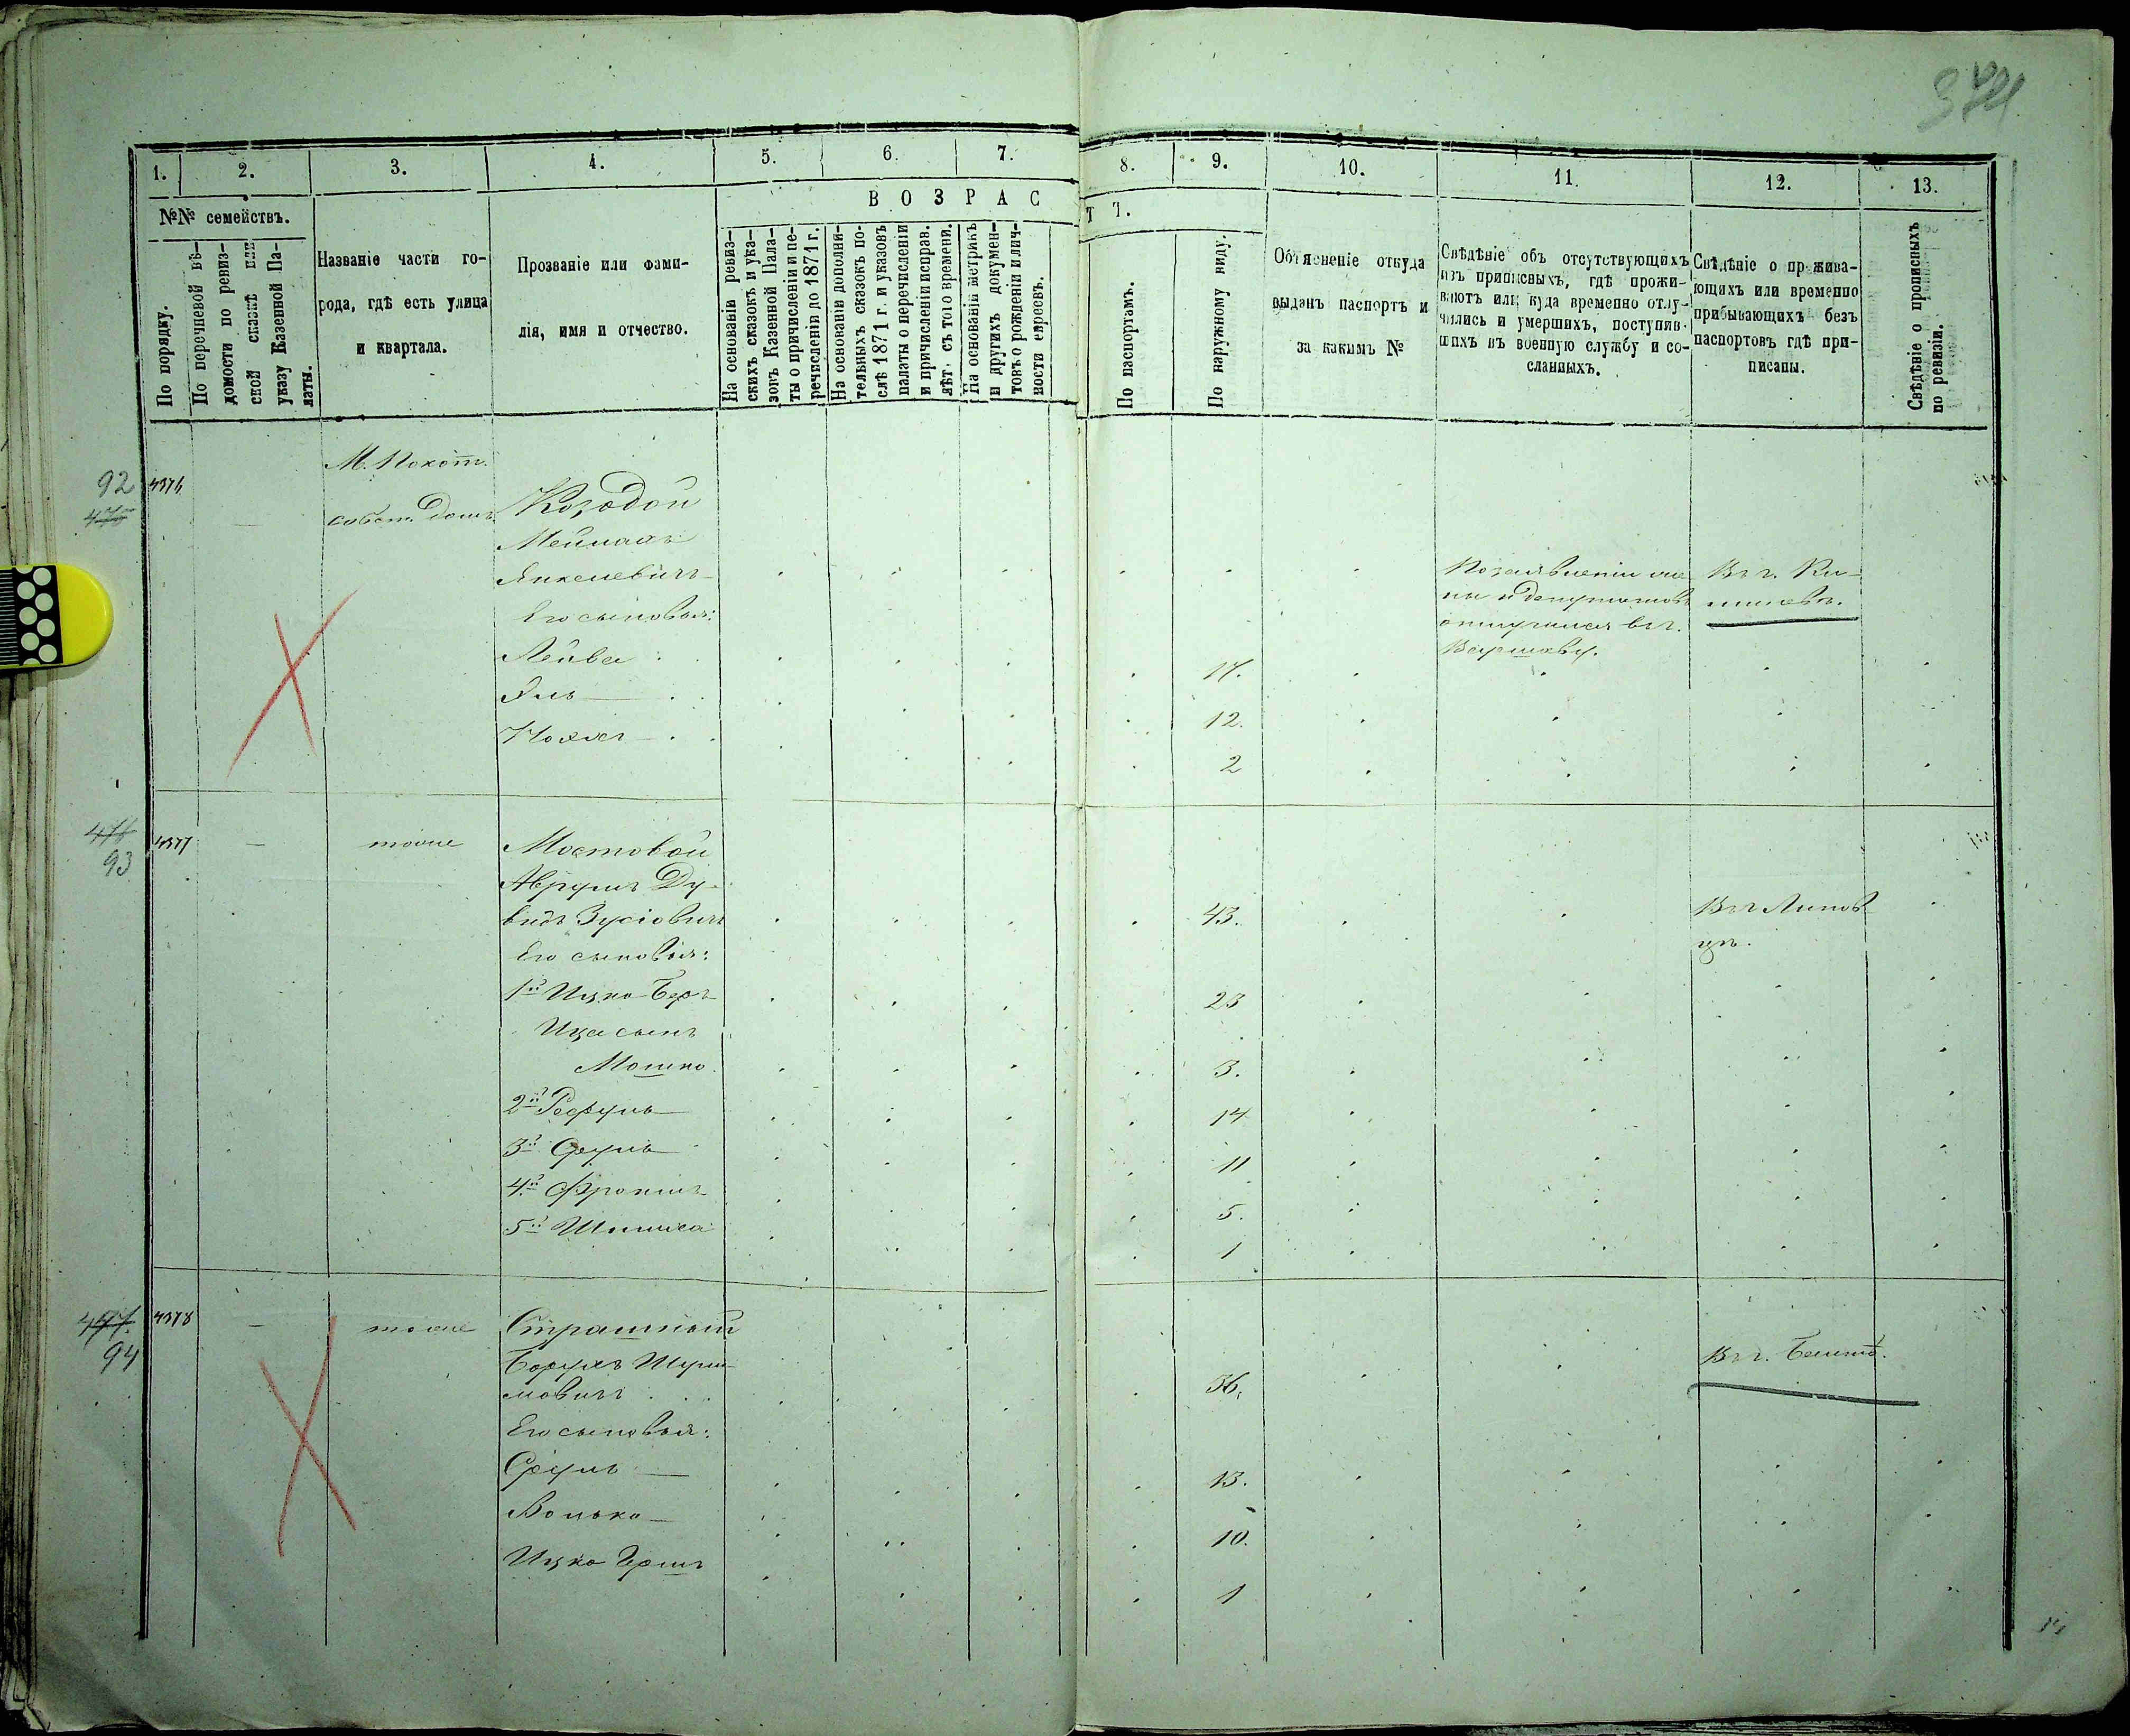 374
1. 2. 3. 4. 5. 6. 7. 8. 9. 10. 11. 12. 13.
№№ семействъ.
По порядку.
По перечневой вѣ-
домости по ревиз-
ской сказкѣ или
указу Казенной Па-
латы.
Названіе части го-
рода, гдѣ есть улица
и квартала.
Прозваніе или фами-
лія, имя и отчество.
ВОЗРАСТЪ.
На основаніи ревиз-
скихъ сказокъ и ука-
зовъ Казенной Пала-
ты о причисленіи и пе-
речисленіи до 1871 г.
На основаніи дополни-
тельныхъ сказокъ по-
слѣ 1871 г. и указовъ
палаты о перечисленіи
и причисленіи исправ.
лѣт. съ того времени.
На основаніи метрикъ
и другихъ докумен-
товъ о рожденіи и лич-
ности евреевъ.
По паспортамъ.
По наружному виду.
Объясненіе откуда
выданъ паспортъ и
за какимъ №
Свѣдѣніе объ отсутствующихъ
изъ приписныхъ, гдѣ прожи-
ваютъ или куда временно отлу-
чились и умершихъ, поступив-
шихъ въ военную службу и со-
сланныхъ.
Свѣдѣніе о прожива-
ющихъ или временно
прибывающихъ безъ
паспортовъ гдѣ при-
писаны.
Свѣдѣніе о прописныхъ
по ревизіи.
92
475
4376
М. Похот.
собст. домъ
Козодой
Меймахъ
Янкелевичъ
По заявленію же-
ны и депутатовъ
отлучился въ г.
Варшаву.
Въ г. Ки-
шиневѣ.
Его сыновья:
Лейба 17.
Эль 12.
2
476
93
4377 — тоже
Мостовой
Аврумъ Ду-
видъ Зусіовичъ 43. Въ г. Липов-
цѣ.
Его сыновья:
1й Ицко-Беръ 23
Ица сынъ
Мошко 3.
2й Рефуль 14
3й Сруль 11
4й Фроимъ 5.
5й 1
477.
94
4378 — тоже
Страшный
Борухъ Шули-
мовичъ 36. Въ г.
Его сыновья:
Сруль 13.
Волько 10.
Ицко Гершъ 1